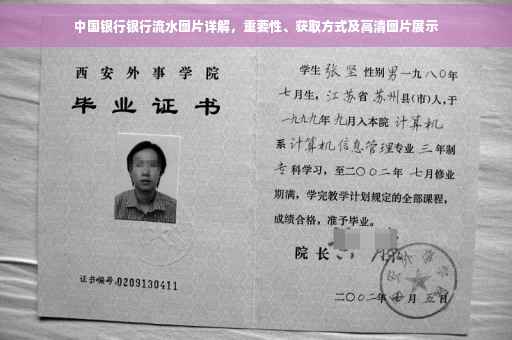 中国银行银行流水图片详解，重要性、获取方式及高清图片展示
西安外事学院
毕业证书
证书编号:0209130411
学生张坚性别男一九八〇年
七月生，江苏省苏州县(市)人,于
一九九九年九月入本院计算机
系计算机信息管理专业三年制
专科学习，至二〇〇二年七月修业
期满，学完教学计划规定的全部课程，
成绩合格，准予毕业。
院长
二〇〇二年 月五日